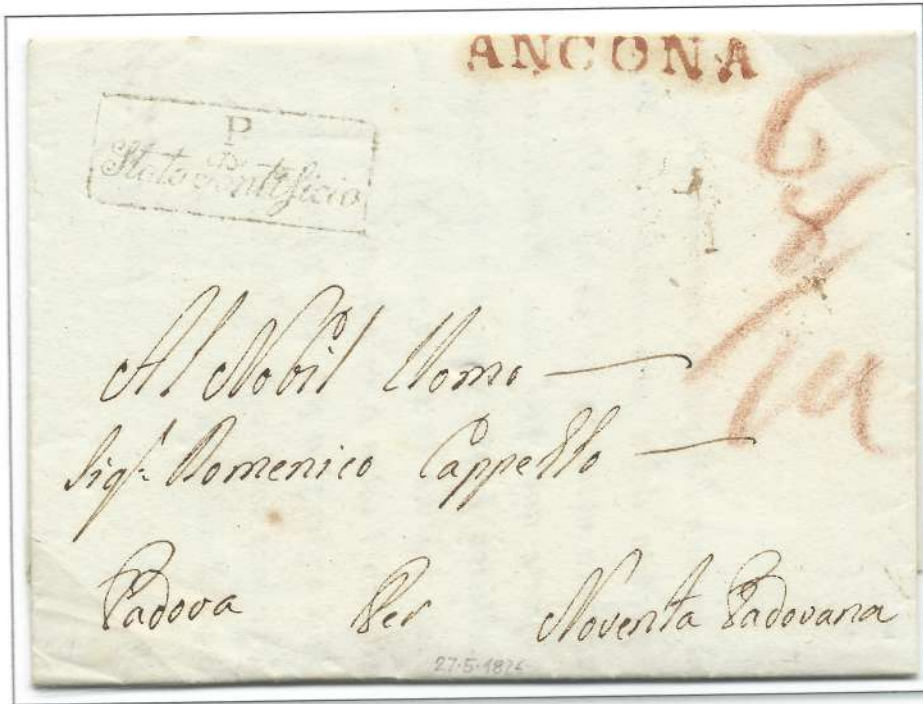 ANCONA
P
Stato Pontificio
Al Nobil Uomo
Sigr. Domenico Cappello
Padova Per Noventa Padovana